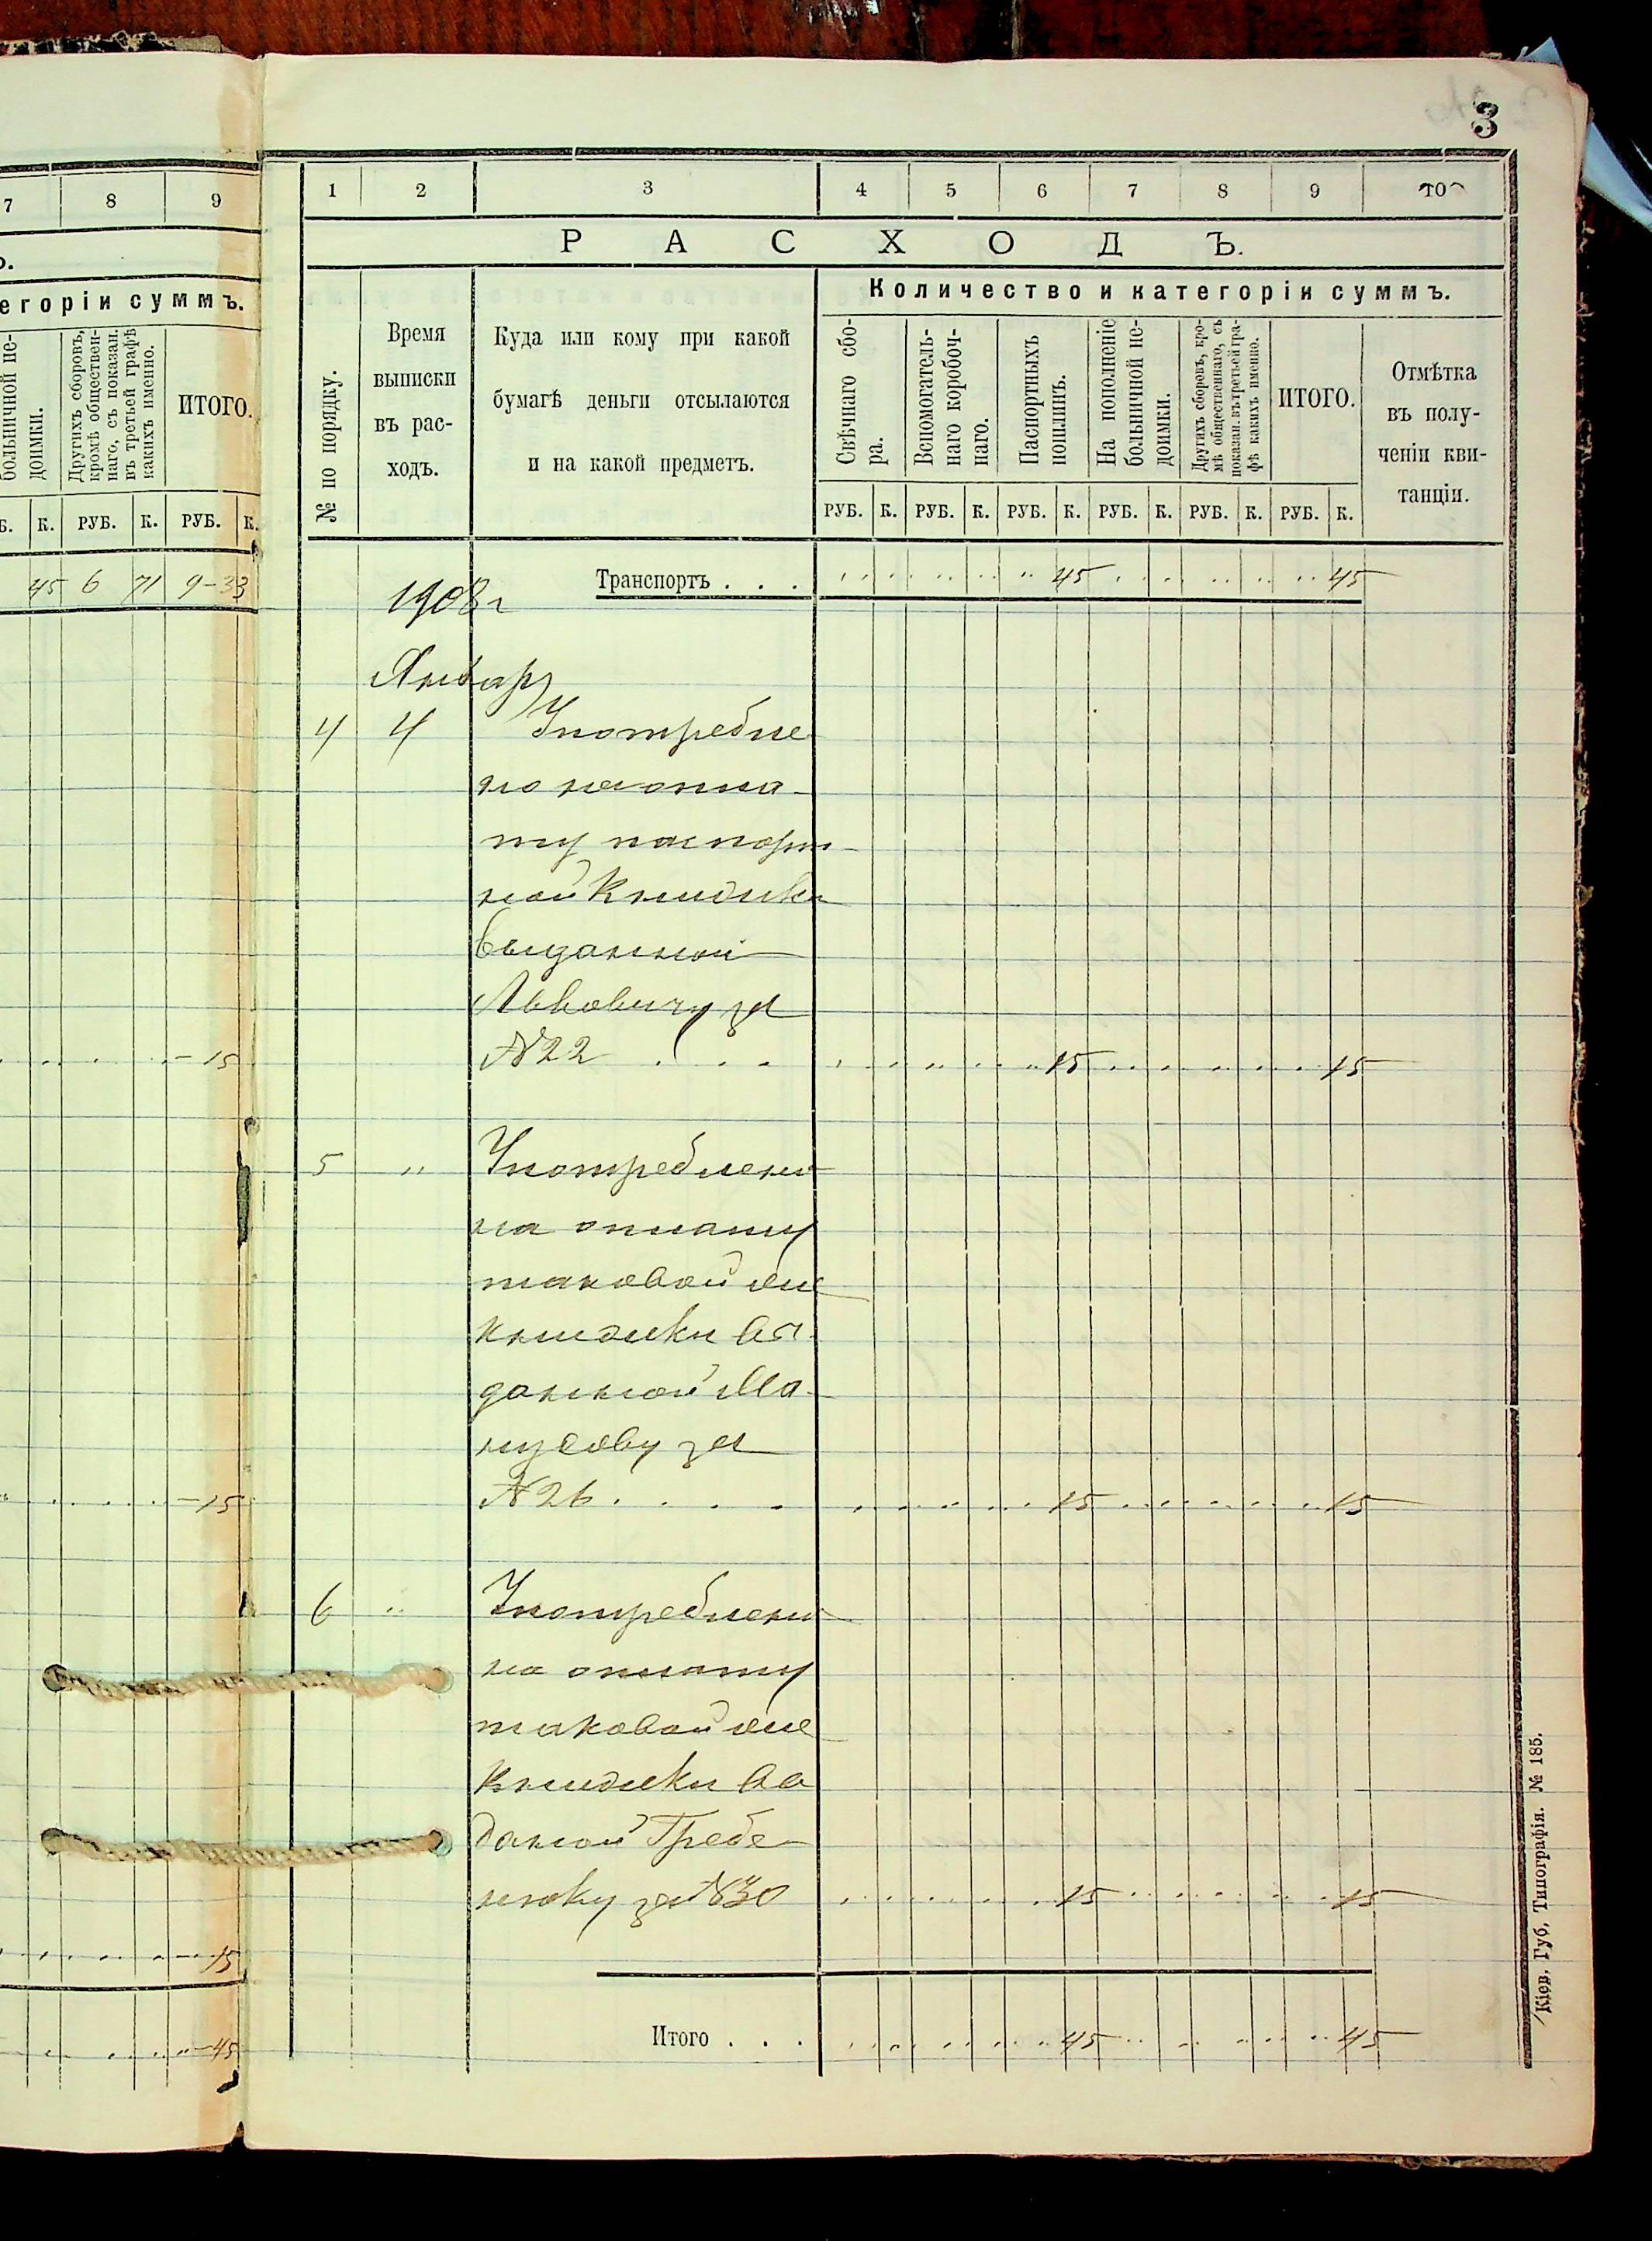 3
7 8 9
ъ.
егоріи суммъ.
больничной не-
доимки.
Другихъ сборовъ,
кромѣ обществен-
наго, съ показан.
въ третьей графѣ
какихъ именно.
ИТОГО.
Б. К. РУБ. К. РУБ. К.
45 6 71 9-33
15
15
15
45
1 2 3 4 5 6 7 8 9 10
РАСХОДЪ.
№ по порядку.
Время
выписки
въ рас-
ходъ.
Куда или кому при какой
бумагѣ деньги отсылаются
и на какой предметъ.
Количество и категоріи суммъ.
Свѣчнаго сбо-
ра.
Вспомогатель-
наго коробоч-
наго.
Паспортныхъ
пошлинъ.
На пополненіе
больничной не-
доимки.
Другихъ сборовъ, кро-
мѣ общественнаго, съ
показан. въ третьей гра-
фѣ какихъ именно.
ИТОГО.
Отмѣтка
въ полу-
ченіи кви-
танціи.
РУБ. К. РУБ. К. РУБ. К. РУБ. К. РУБ. К. РУБ. К.
Транспортъ . . . 45 45
1908 г
Январ
4 4 Употребле
но на опла-
ту паспорт-
ной Книжки
выданной
Львовичу за
№ 22 . . . 15 15
5 " Употреблено
на оплату
таковой же
книжки вы-
данной Ма-
нусову за
№ 26 . . . . 15 15
6 " Употреблено
на оплату
таковой же
Книжки вы
даной Гребе-
нюку за № 30 15 15
Итого . . . 45 45
Кіев. Губ. Типографія. № 185.